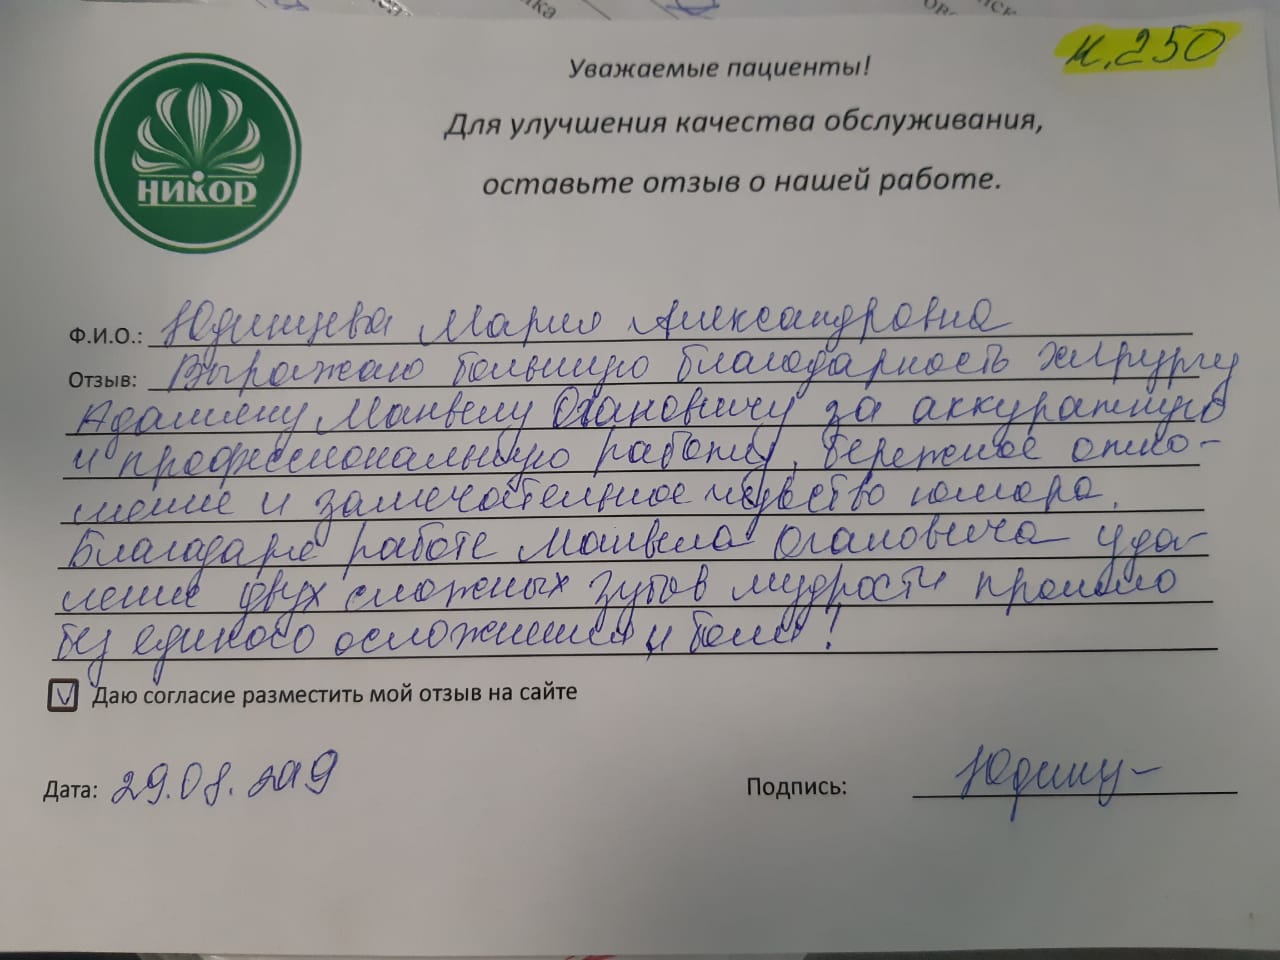 и.250
Уважаемые пациенты!
Для улучшения качества обслуживания,
оставьте отзыв о нашей работе.
НИКОР
Ф.И.О.: Юдинцева Мария Александровна
Отзыв: Выражаю большую благодарность хирургу
Адамяну Манвелу Огановичу за аккуратную
и профессиональную работу, бережное отно-
шение и замечательное чувство юмора.
Благодаря работе Манвела Огановича уда-
ление двух сложных зубов мудрости прошло
без единого осложнения и боли!
V Даю согласие разместить мой отзыв на сайте
Дата: 29.08.2019
Подпись: Юдинц-